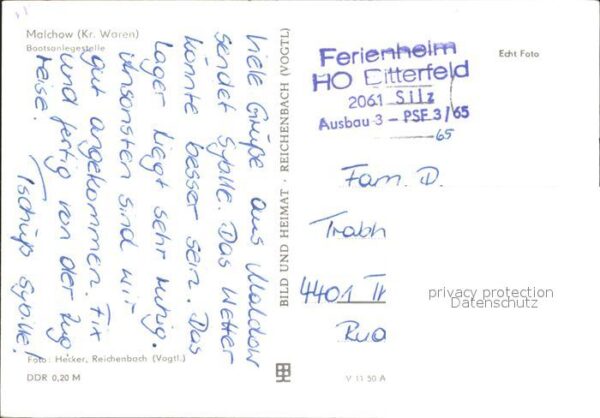 Malchow (Kr. Waren)
Bootsanlegestelle
Viele Grüße aus Malchow
sendet Sybille. Das Wetter
könnte besser sein. Das
Lager liegt sehr ruhig.
Ansonsten sind wir
gut angekommen. Fix
und fertig von der Zug
reise.
Tschüß Sybille!
Foto: Hecker, Reichenbach (Vogtl.)
DDR 0,20 M
BILD UND HEIMAT · REICHENBACH (VOGTL)
V 11 50 A
Echt Foto
Ferienheim
HO Bitterfeld
2061 Silz
Ausbau 3 – PSF 3/65
65
Fam. D.
4401
privacy protection
Datenschutz